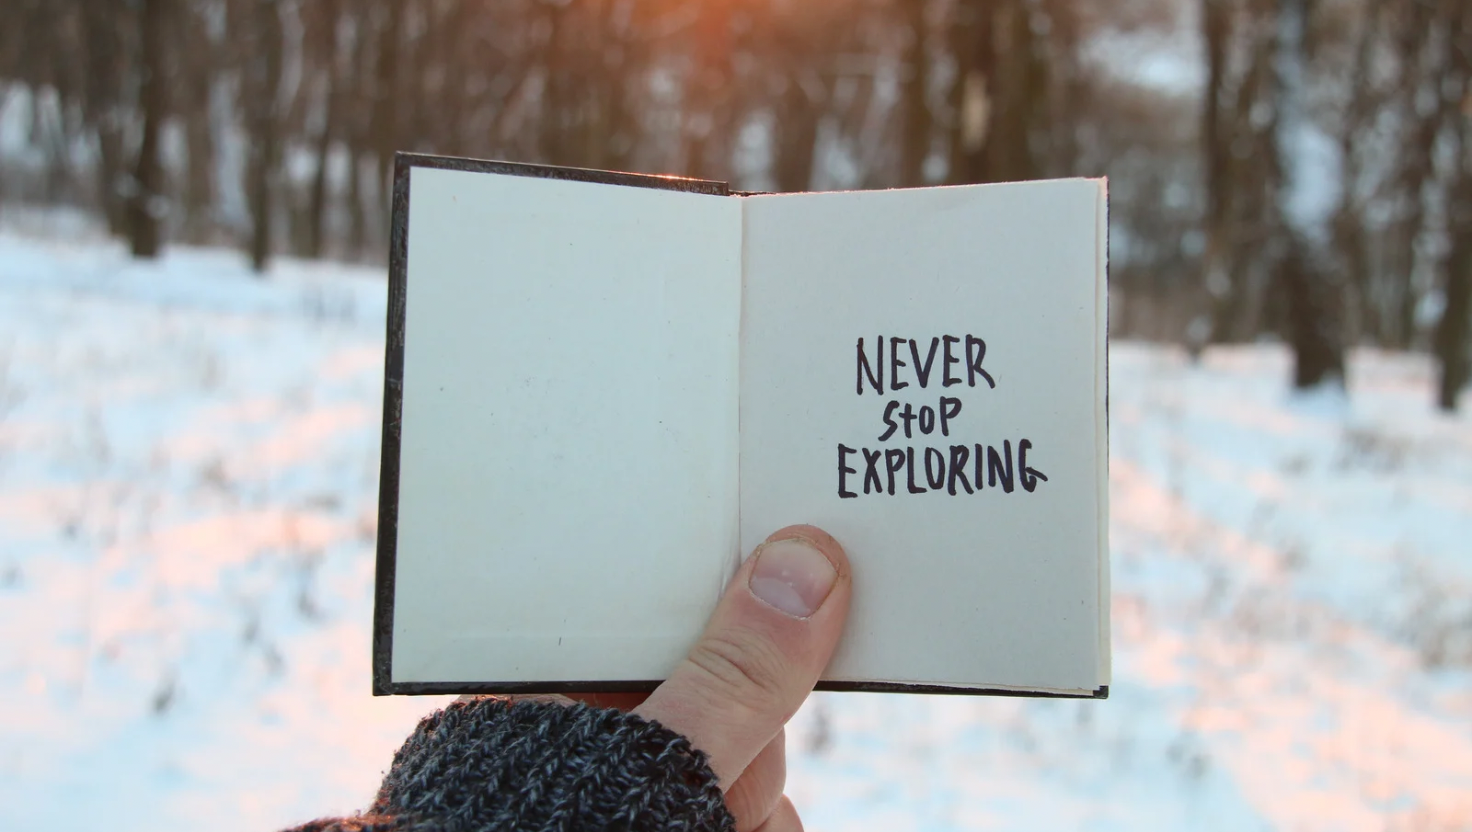 NEVER
stop
EXPLORING